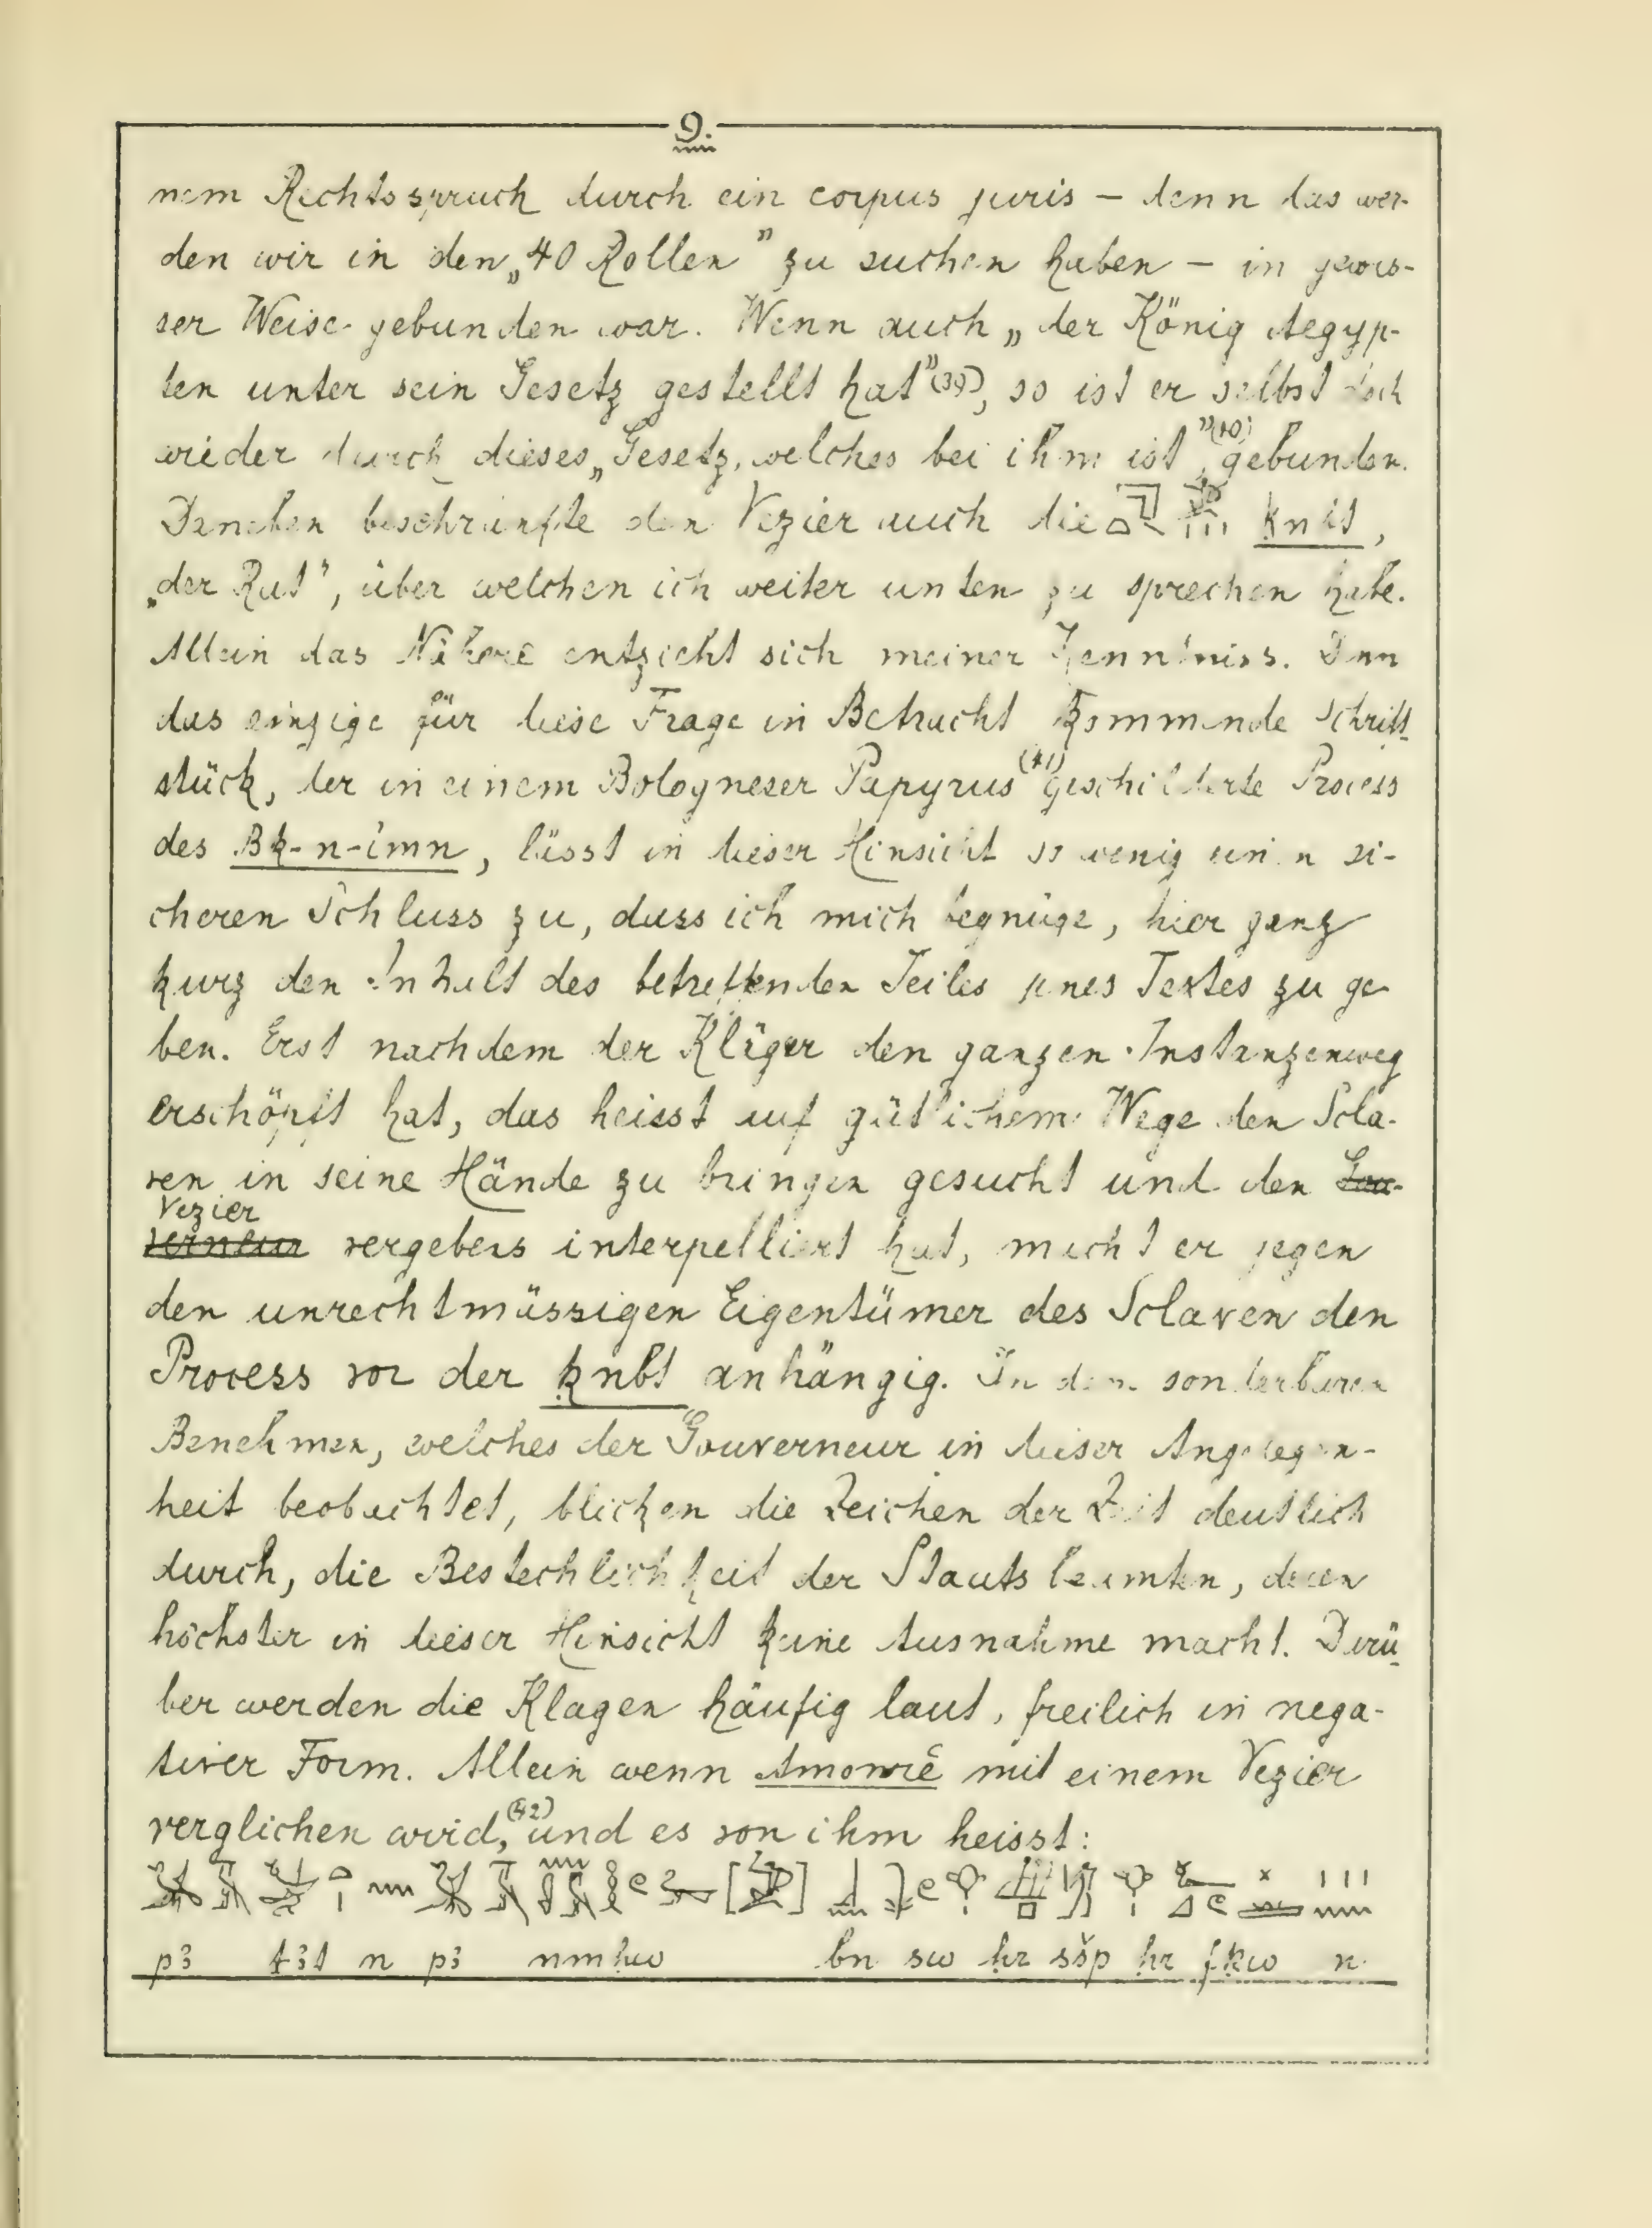 9.
nem Rechtsspruch durch ein corpus juris – denn das wer-
den wir in den „40 Rollen” zu suchen haben – in gewis-
ser Weise gebunden war. Wenn auch „der König Aegyp-
ten unter sein Gesetz gestellt hat”(39), so ist er selbst doch
wieder durch dieses „Gesetz, welches bei ihm ist”(40), gebunden.
Daneben beschränkte den Vezier auch die knbt,
„der Rat”, über welchen ich weiter unten zu sprechen habe.
Allein das Nähere entzieht sich meiner Kenntniss. Denn
das einzige für diese Frage in Betracht kommende Schrift-
stück, der in einem Bologneser Papyrus(41) geschilderte Process
des Bk-n-imn, lässt in dieser Hinsicht so wenig einen si-
cheren Schluss zu, dass ich mich begnüge, hier ganz
kurz den Inhalt des betreffenden Teiles jenes Textes zu ge-
ben. Erst nachdem der Kläger den ganzen Instanzenweg
erschöpft hat, das heisst auf gütlichem Wege den Scla-
ven in seine Hände zu bringen gesucht und den Gou-
Vezier
verneur vergebens interpelliert hat, macht er gegen
den unrechtmässigen Eigentümer des Sclaven den
Process vor der knbt anhängig. In dem sonderbaren
Benehmen, welches der Gouverneur in dieser Angelegen-
heit beobachtet, blicken die Zeichen der Zeit deutlich
durch, die Bestechlichkeit der Staatsbeamten, deren
höchster in dieser Hinsicht keine Ausnahme macht. Darü-
ber werden die Klagen häufig laut, freilich in nega-
tiver Form. Allein wenn Amonrē mit einem Vezier
verglichen wird,(42) und es von ihm heisst:
p3 t3t n p3 nmḥw bn sw ḥr sšp ḥr fkw n